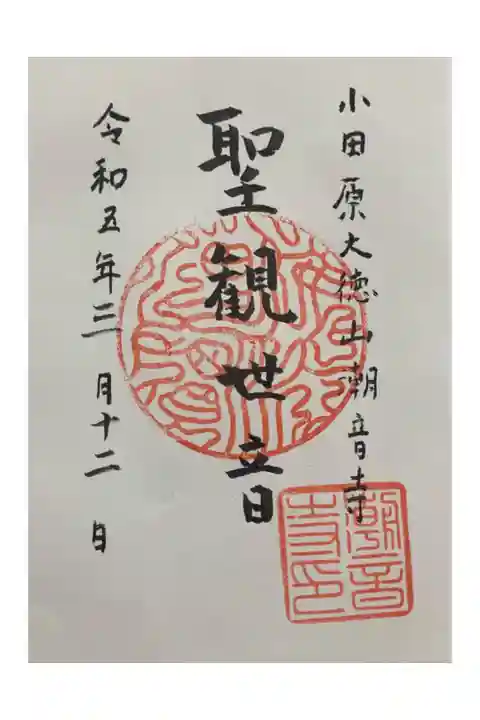 小田原大徳山潮音寺
聖観世音
令和五年三月十二日
潮音寺印